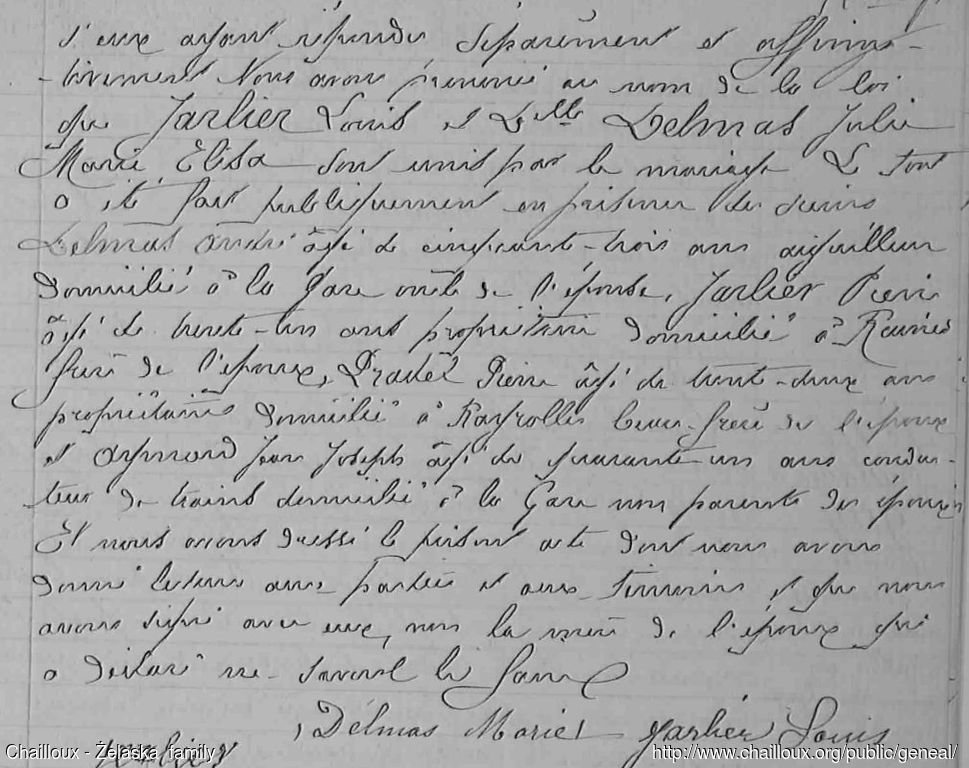 d'eux ayant répondu séparément et affirma-
tivement Nous avons prononcé au nom de la loi
que Jarlier Louis et Delle Delmas Julie
Marie Elisa sont unis par le mariage Le tout
a été fait publiquement en présence des sieurs
Delmas André âgé de cinquante-trois ans aiguilleur
domicilié à la Gare oncle de l'épouse, Jarlier Pierre
âgé de trente-un ans propriétaire domicilié à
frère de l'époux, Pradel Pierre âgé de trente-deux ans
propriétaire domicilié à beau-frère de l'époux
et Aymard Jean Joseph âgé de quarante-un ans conduc-
teur de trains domicilié à la Gare non parents des époux
Et nous avons dressé le présent acte dont nous avons
donné lecture aux parties et aux témoins et que nous
avons signé avec eux, non la mère de l'époux qui
a déclaré ne savoir le faire
Delmas Marie Jarlier Louis
Jarlier
Chailloux - Zelaska family
http://www.chailloux.org/public/geneal/